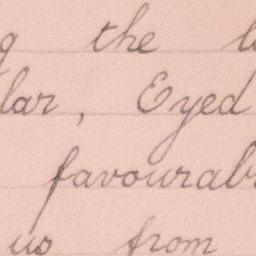 the
lar, Eyed
favourab
us from